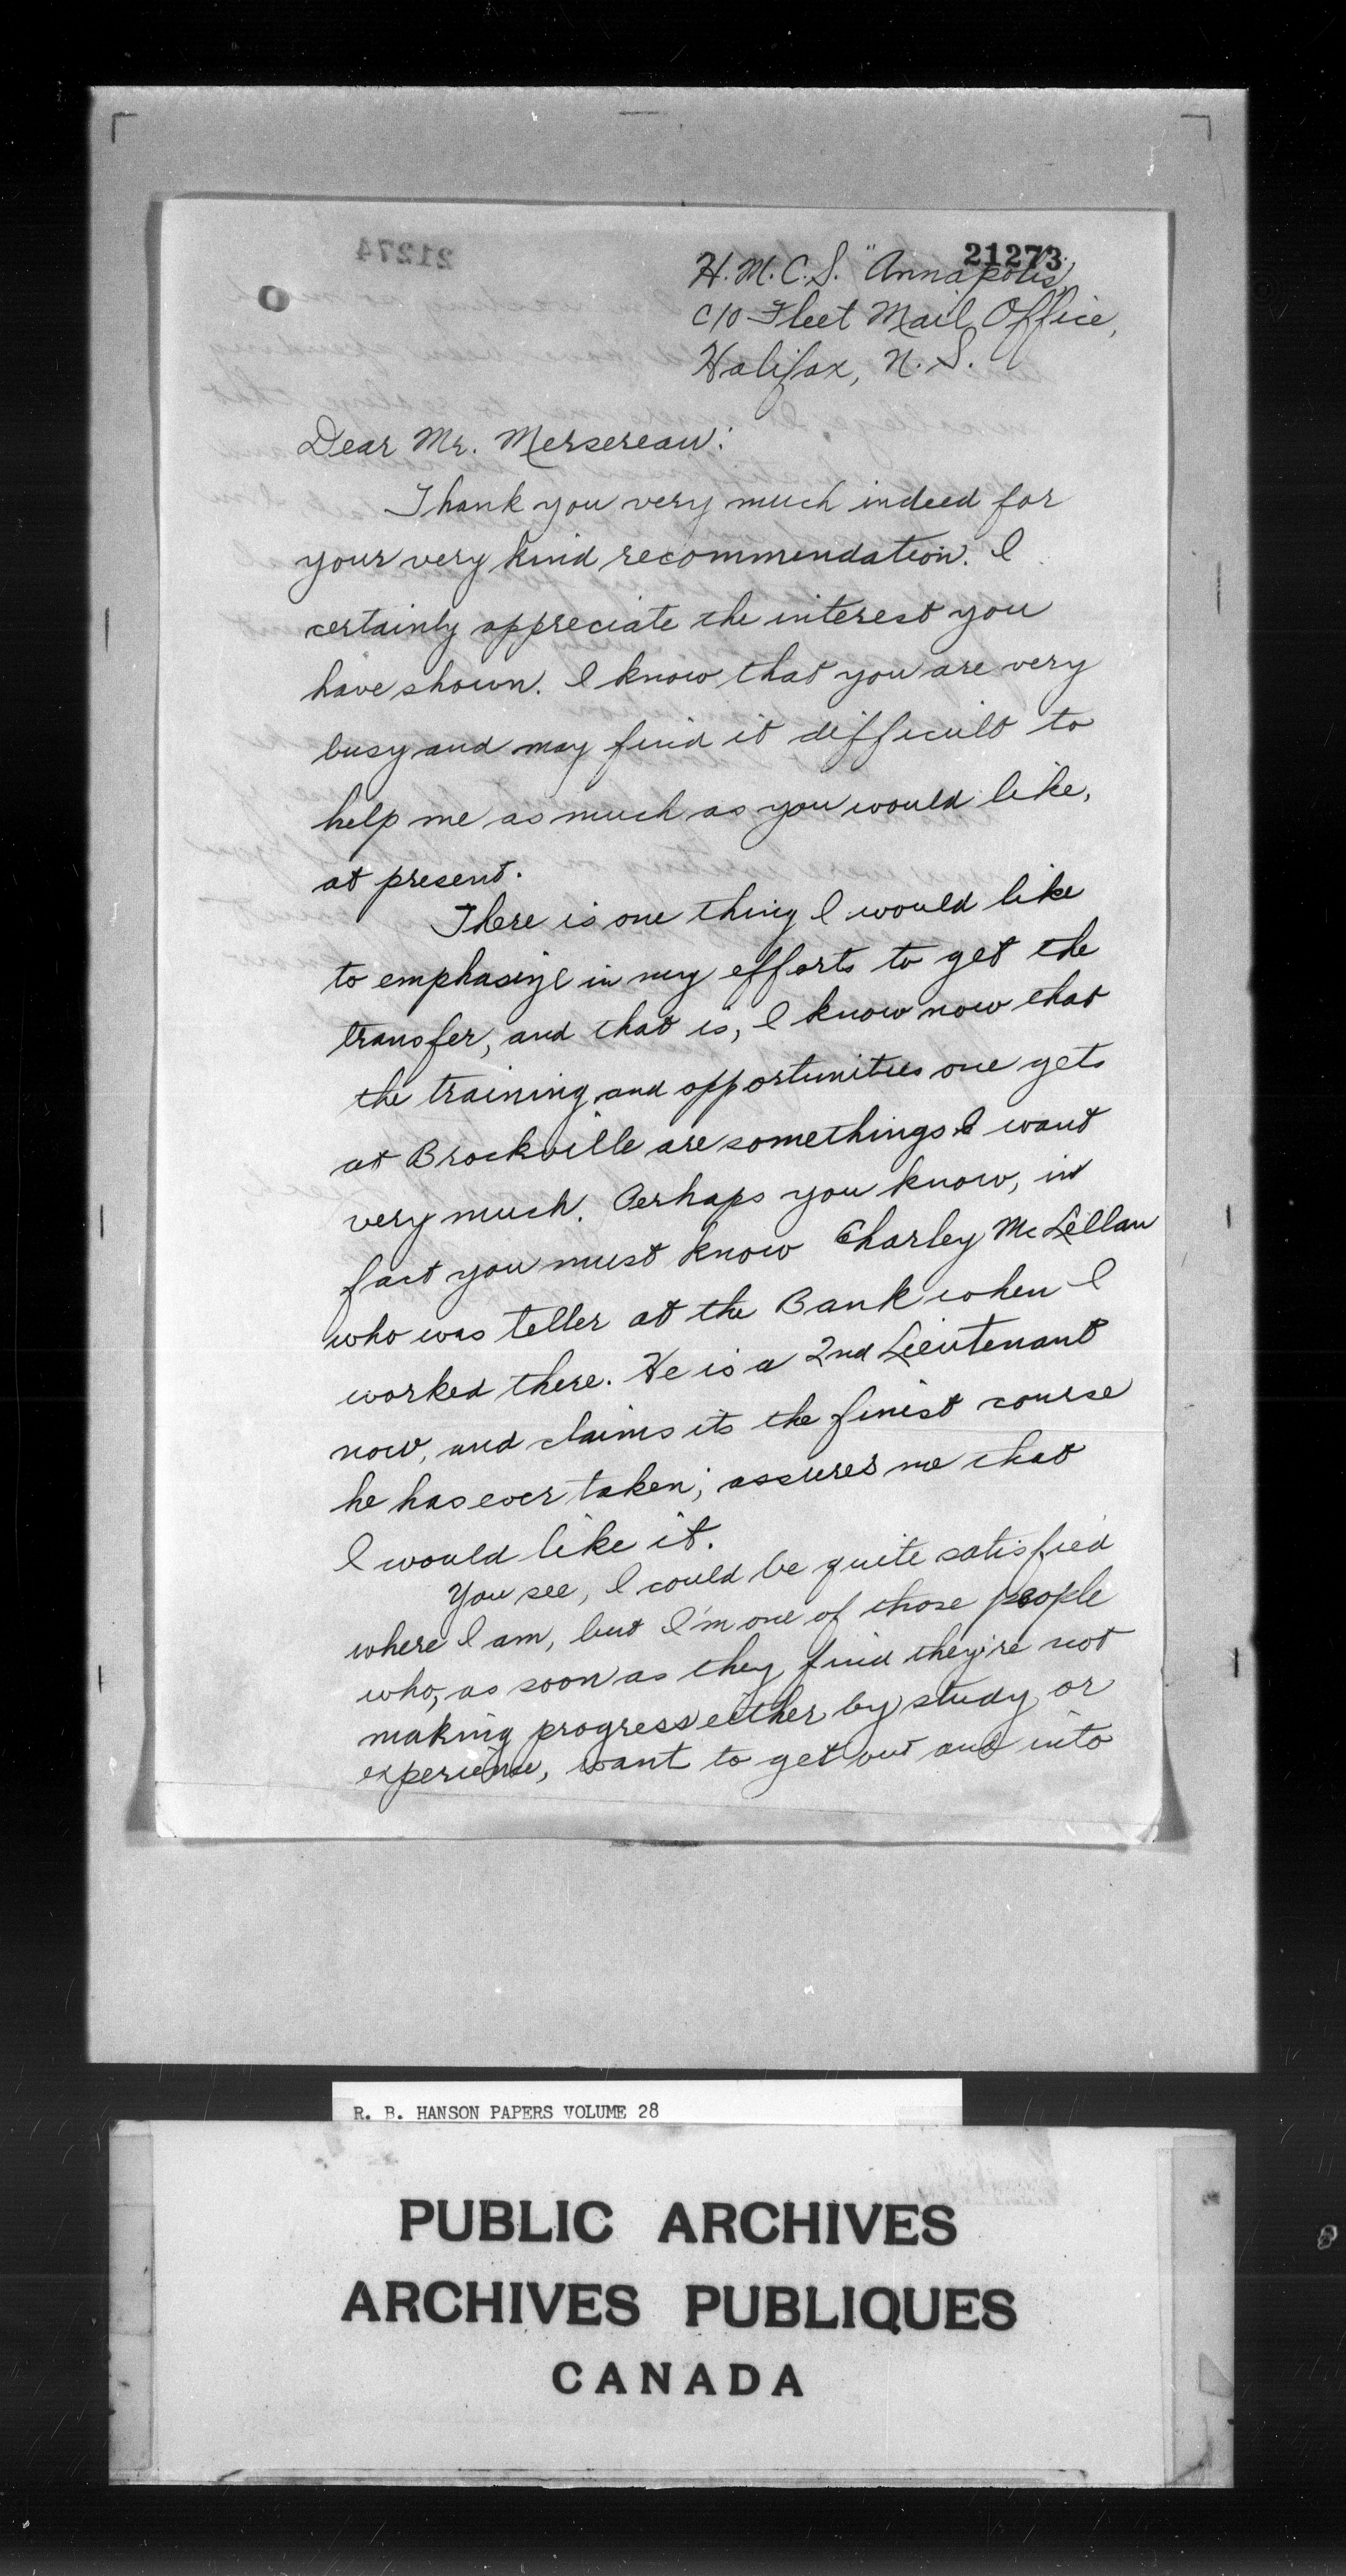 21273
21274
H. M. C. S. "Annapolis",
c/o Fleet Mail Office,
Halifax, N. S.
Dear Mr. Mersereau:
Thank you very much indeed for
your very kind recommendation. I
certainly appreciate the interest you
have shown. I know that you are very
busy and may find it difficult to
help me as much as you would like,
at present.
There is one thing I would like
to emphasize in my efforts to get the
transfer, and that is, I know now that
the training and opportunities one gets
at Brockville are somethings I want
very much. Perhaps you know, in
fact you must know Charley McLellan
who was teller at the Bank when I
worked there. He is a 2nd Lieutenant
now, and claims its the finest course
he has ever taken; assures me that
I would like it.
You see, I could be quite satisfied
where I am, but I'm one of those people
who, as soon as they find they're not
making progress either by study or
experience, want to get out and into
R. B. HANSON PAPERS VOLUME 28
PUBLIC ARCHIVES
ARCHIVES PUBLIQUES
CANADA